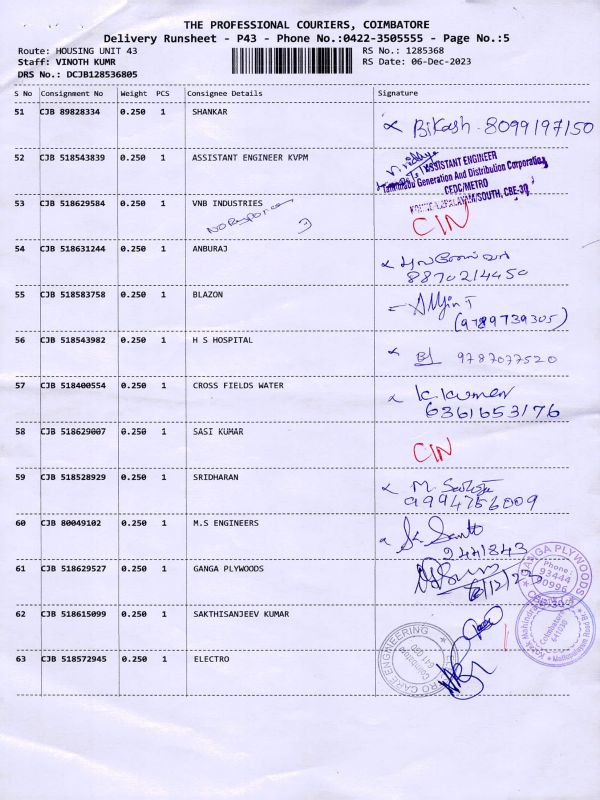 THE PROFESSIONAL COURIERS, COIMBATORE
Delivery Runsheet - P43 - Phone No.:0422-3505555 - Page No.:5
Route: HOUSING UNIT 43 RS No.: 1285368
Staff: VINOTH KUMR RS Date: 06-Dec-2023
DRS No.: DCJB128536805
S No Consignment No Weight PCS Consignee Details Signature
51 CJB 89828334 0.250 1 SHANKAR Bikash - 8099197150
52 CJB 518543839 0.250 1 ASSISTANT ENGINEER KVPM
ASSISTANT ENGINEER
Tamilnadu Generation And Distribution Corporation
CEDC/METRO
/SOUTH, CBE-30
53 CJB 518629584 0.250 1 VNB INDUSTRIES CIN
No Response
3
54 CJB 518631244 0.250 1 ANBURAJ
8870214450
55 CJB 518583758 0.250 1 BLAZON
(9789739305)
56 CJB 518543982 0.250 1 H S HOSPITAL 9787077520
57 CJB 518400554 0.250 1 CROSS FIELDS WATER K. Kumar
6361653176
58 CJB 518629007 0.250 1 SASI KUMAR CIN
59 CJB 518528929 0.250 1 SRIDHARAN M.
9994756009
60 CJB 80049102 0.250 1 M.S ENGINEERS
2441843
61 CJB 518629527 0.250 1 GANGA PLYWOODS 6/12/23
GANGA PLYWOODS
Phone:
93444
62 CJB 518615099 0.250 1 SAKTHISANJEEV KUMAR
Kotak Mahindra
Coimbatore
641030
Mettupalayam Road
63 CJB 518572945 0.250 1 ELECTRO
Coimbatore
641 030